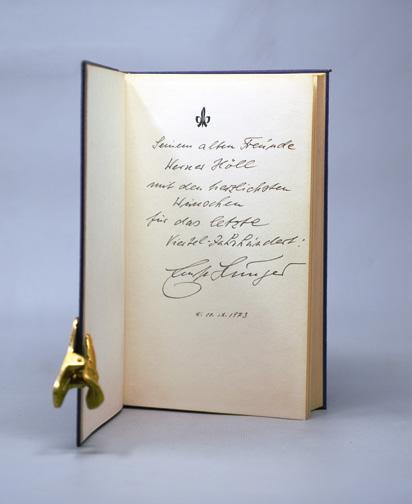 Seinem alten Freunde
Werner Höll
mit den herzlichsten
Wünschen
für das letzte
Viertel-Jahrhundert:
Ernst Jünger
10. IX. 1973